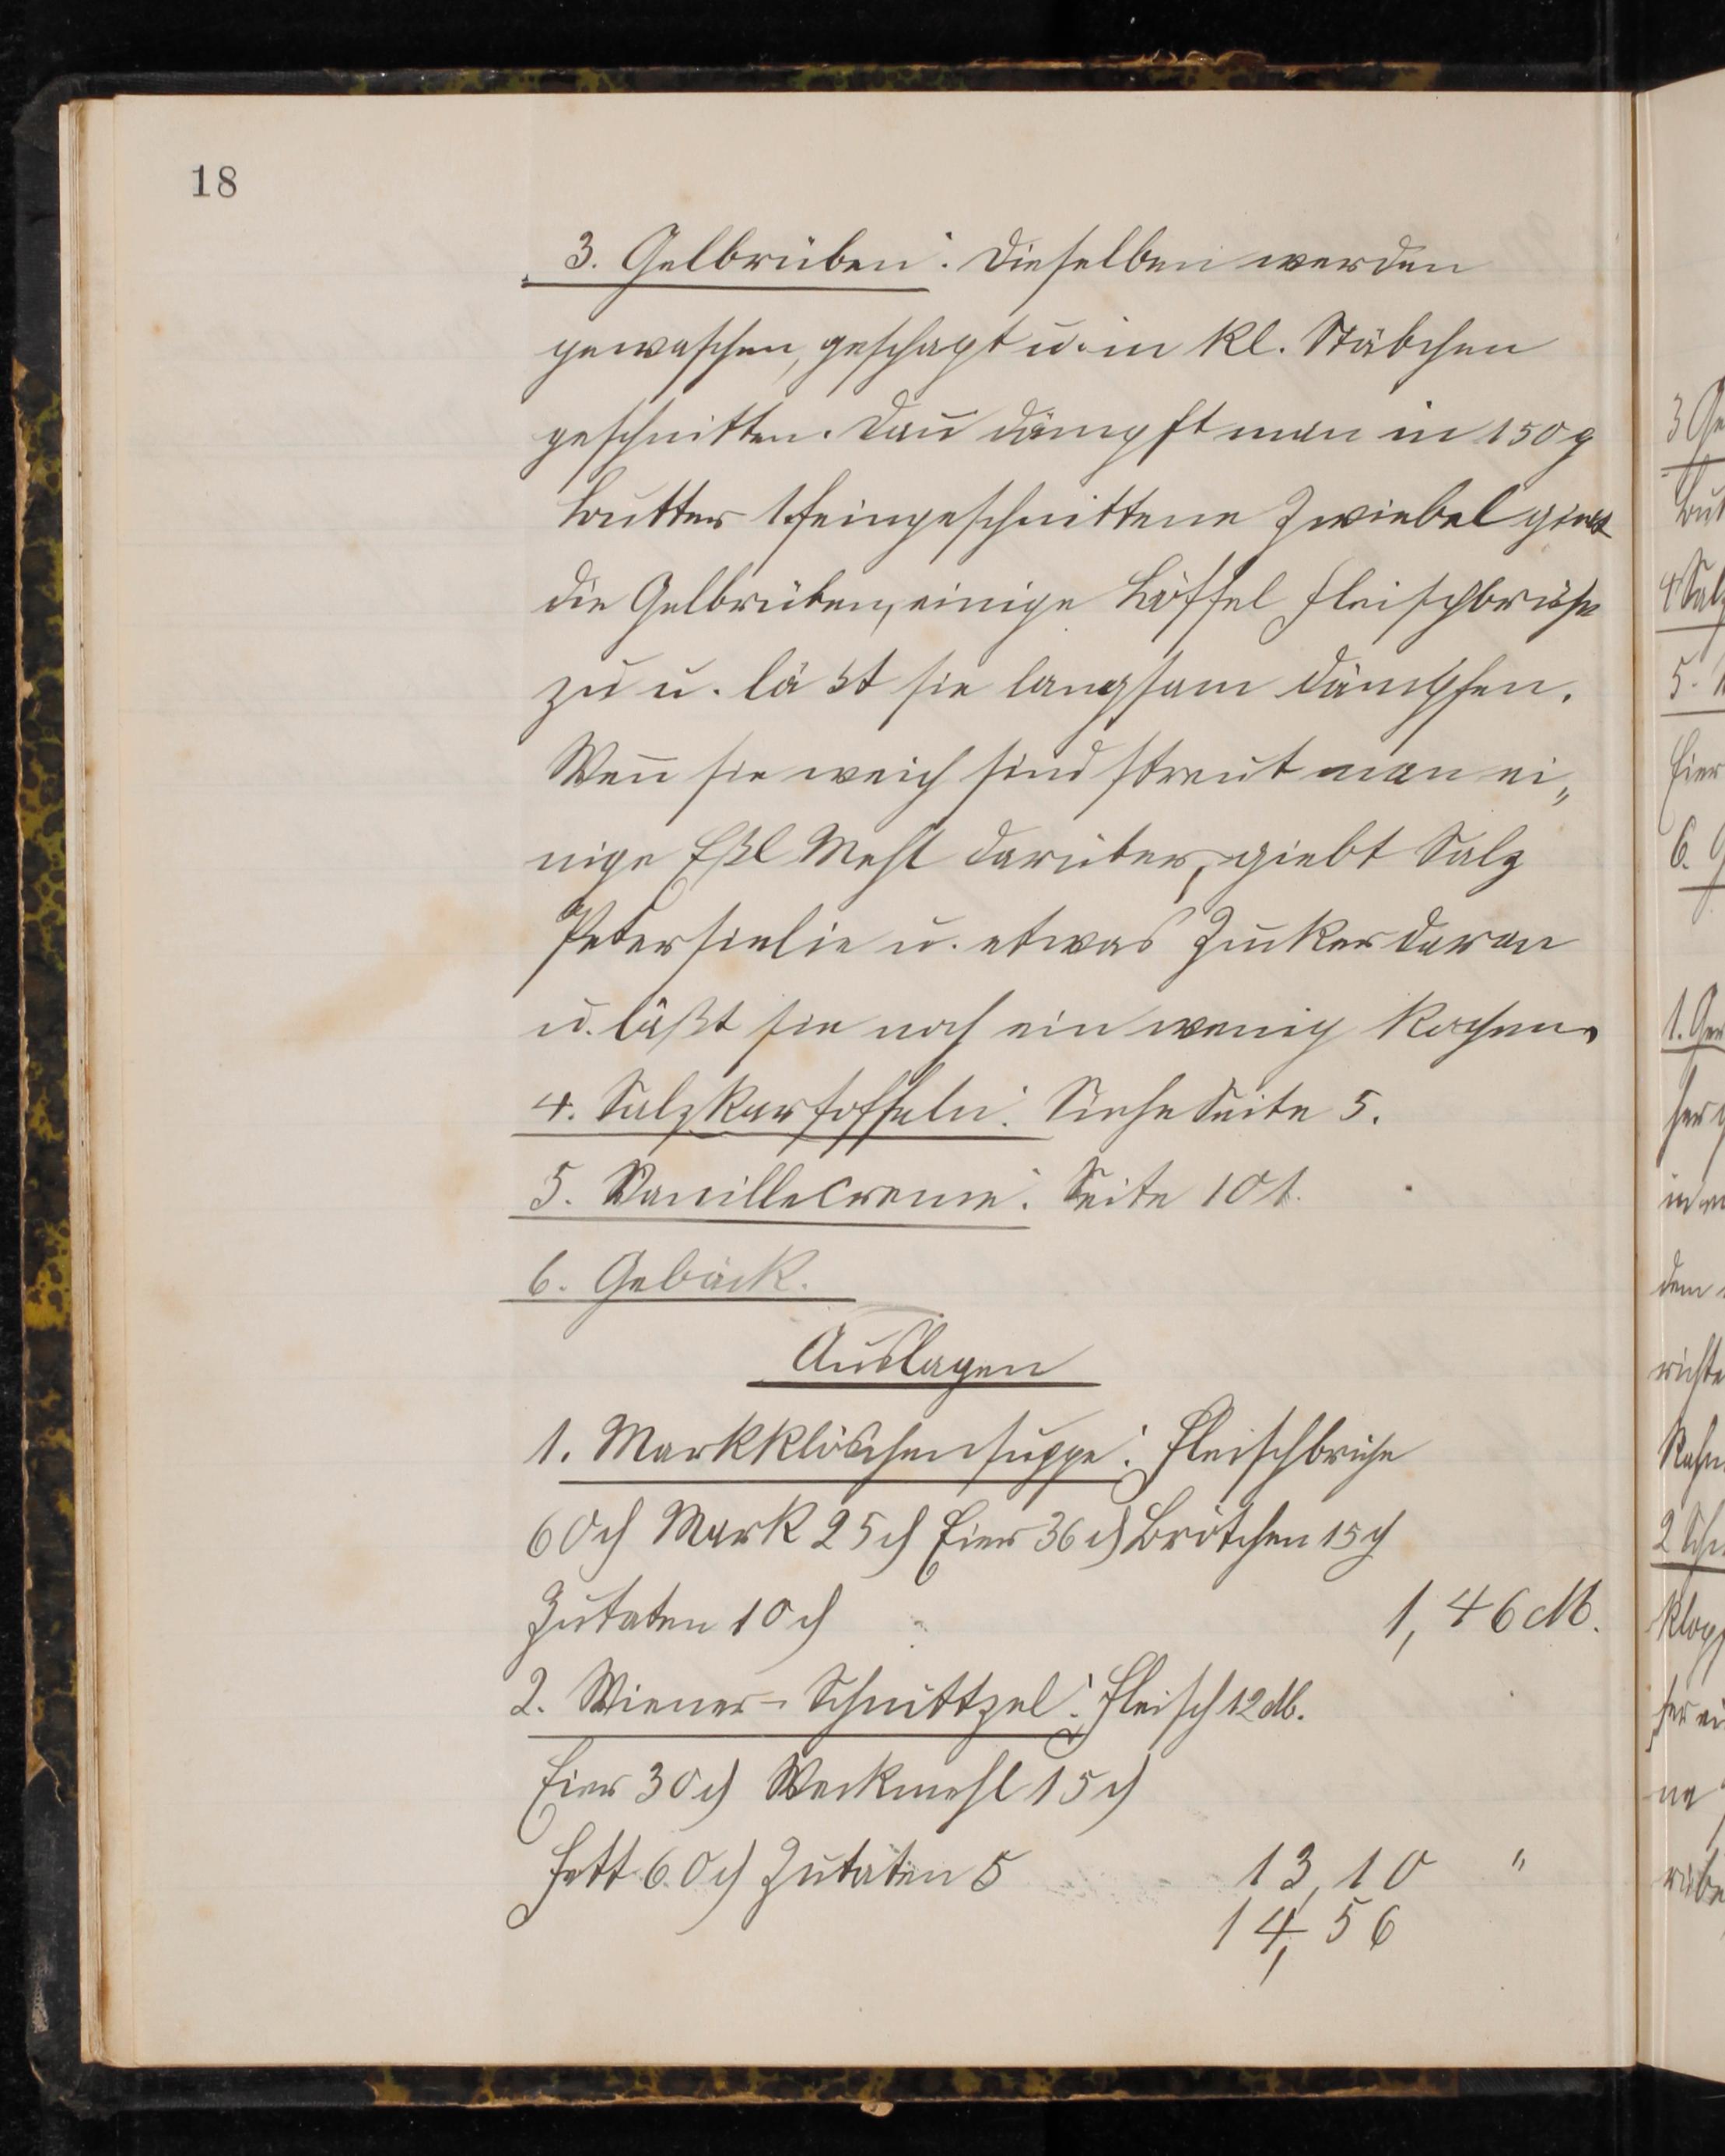 18
3. Gelbrüben: Dieselben werden
gewaschen, geschapt u. in kl. Stäbchen
geschnitten. Dan̄ dämpft man in 150 g
Butter 1 feingeschnittene Zwiebel giebt
die Gelbrüben, einige Löffel Fleischbrühe
zu u. läßt sie langsam dämpfen.
Wen̄ sie weich sind streut man ei„
nige Eßl Mehl darüber, giebt Salz
Petersielie u. etwas Zucker daran
u. läßt sie noch ein wenig kochen.
4. Salzkartoffeln: Siehe Seite 5.
5. Vanillecreme: Seite 101.
6. Gebäck.
Auslagen
1. Markklöschensuppe: Fleischbrühe
60 ₰ Mark 25 ₰ Eier 36 ₰ Brötchen 15 ₰
Zutaten 10 ₰ 1,46 M.
2. Wiener-Schnittzel: Fleisch 12 M.
Eier 30 ₰ Weckmehl 15 ₰
Fett 60 ₰ Zutaten 5 13,10 "
14,56